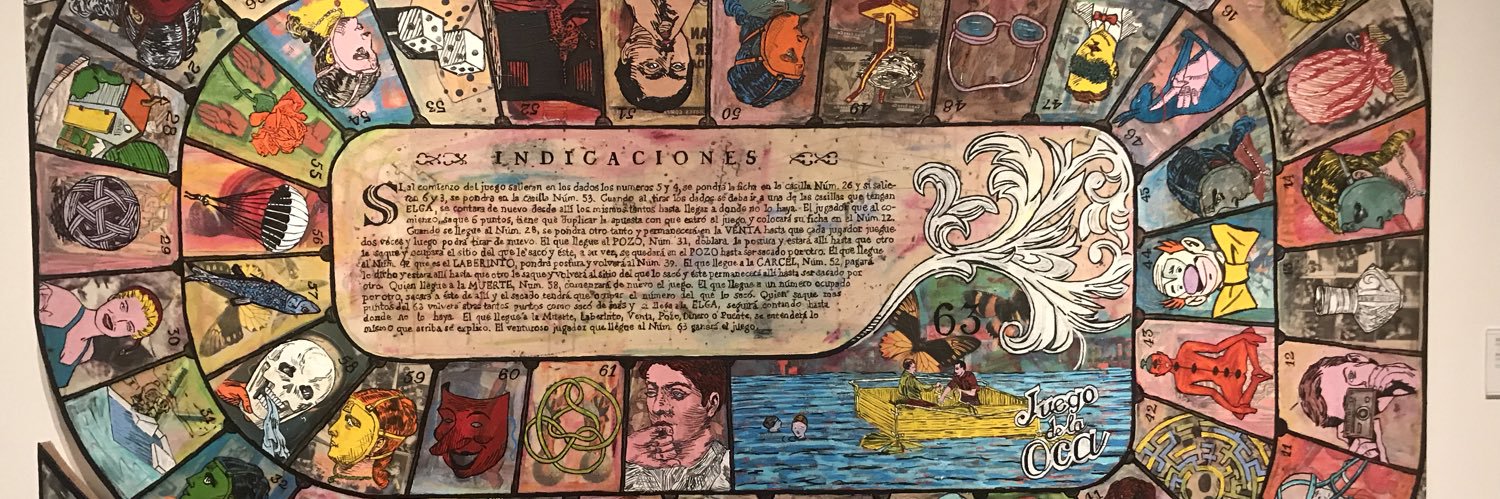 INDICACIONES
SI al comienzo del juego salieran en los dados los numeros 5 y 4, se pondrá la ficha en la casilla Núm. 26 y si salie-
ran 6 y 3, se pondra en la casilla Núm. 53. Cuando al tirar los dados se da a una de las casillas que tengan
ELGA, se contara de nuevo desde allí los mismos tantos hasta llegar a donde no lo haya. El jugador que al co-
mienzo, saque 6 puntos, tiene que duplicar la apuesta con que entró al juego y colocará su ficha en el Núm. 12.
Cuando se llegue al Núm. 28, se pondra otro tanto y permanecerá en la VENTA hasta que cada jugador juegue
dos véces y luego podrá tirar de nuevo. El que llegue al POZO, Núm. 31, doblara la postura y estará allí hasta que otro
le saque y ocupara el sitio del que le sacó y éste, a su vez, se quedará en el POZO hasta ser sacado por otro. El que llegue
al Núm. 42 que es el LABERINTO, pondrá postura y volverá al Núm. 39. El que llegue a la CARCEL, Núm. 52, pagará
lo dicho y estara allí hasta que otro le saque y volverá al sitio del que lo sacó y éste permanecerá allí hasta ser sacado por
otro. Quien llegue a la MUERTE, Num. 58, comenzará de nuevo el juego. El que llegue a un número ocupado
por otro, sacara a éste de allí y el sacado tendrá que ocupar el número del que lo sacó. Quien saque mas
puntos del 63 volvera atras tantos puntos como sacó de más y si llega a la ELGA, seguirá contando hasta
donde no lo haya. El que llegue a la Muerte, Laberinto, Venta, Pozo, Dinero o Puente, se entenderá lo
mismo que arriba se explico. El venturoso jugador que llegue al Núm. 63 ganará el juego.
63
Juego
de la
Oca
54
53
52
51
50
48
47
46
45
44
43
42
41
55
56
57
58
59
60
61
28
29
30
32
16
14
12
11